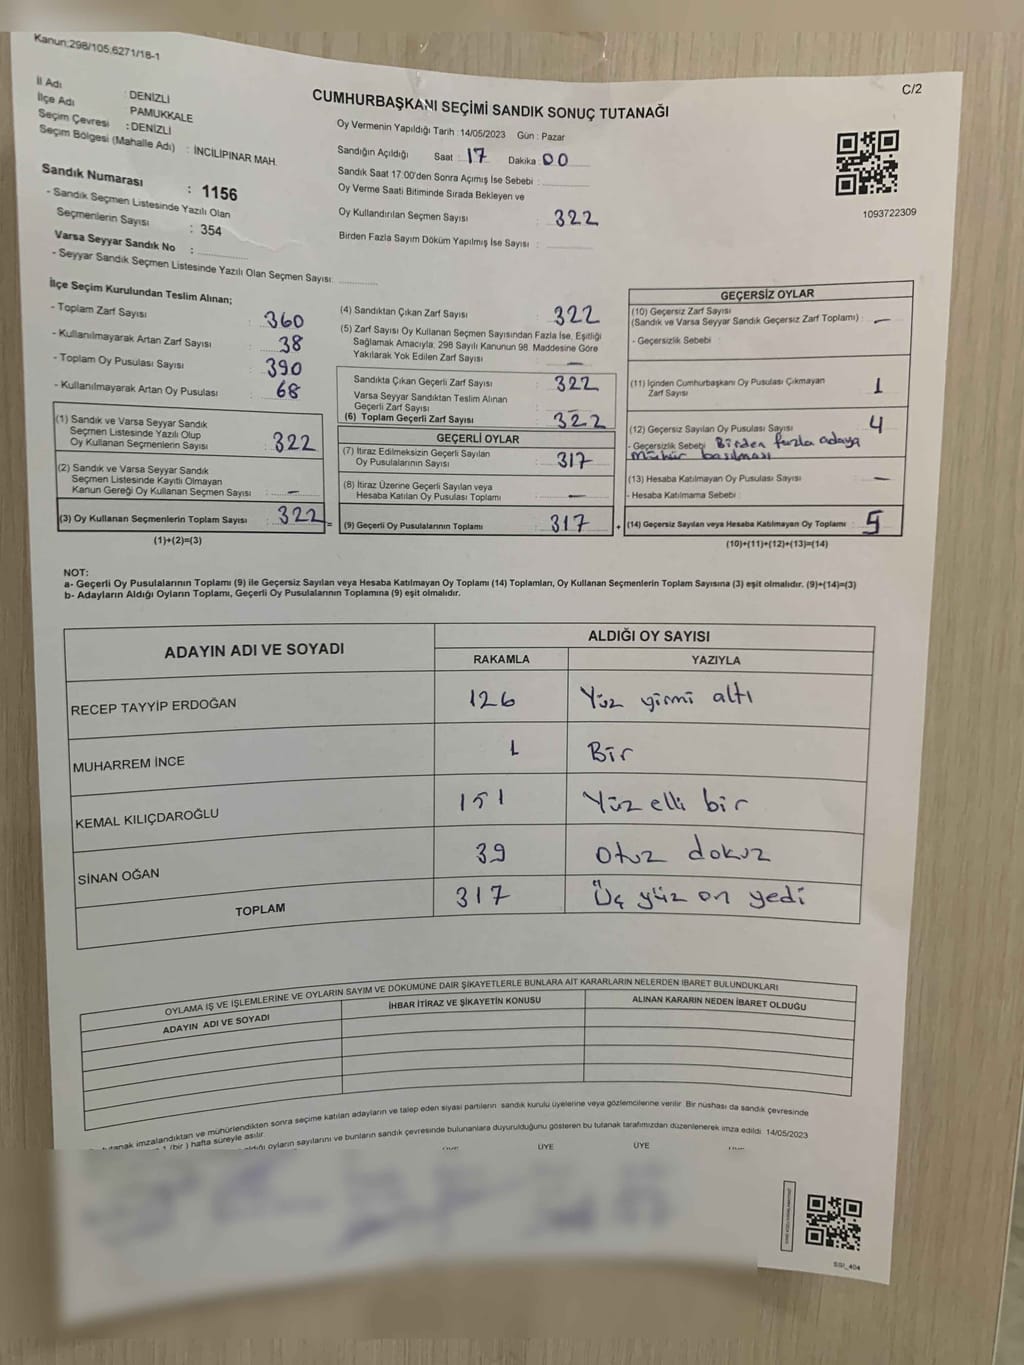 Kanun:298/105,6271/18-1
C/2
İl Adı : DENİZLİ
İlçe Adı PAMUKKALE
Seçim Çevresi : DENİZLİ
Seçim Bölgesi (Mahalle Adı) : İNCİLİPINAR MAH.
Sandık Numarası : 1156
- Sandık Seçmen Listesinde Yazılı Olan
Seçmenlerin Sayısı : 354
Varsa Seyyar Sandık No :
- Seyyar Sandık Seçmen Listesinde Yazılı Olan Seçmen Sayısı:
CUMHURBAŞKANI SEÇİMİ SANDIK SONUÇ TUTANAĞI
Oy Vermenin Yapıldığı Tarih : 14/05/2023 Gün : Pazar
Sandığın Açıldığı Saat : 17 Dakika : 00
Sandık Saat 17:00'den Sonra Açımış İse Sebebi :
Oy Verme Saati Bitiminde Sırada Bekleyen ve
Oy Kullandırılan Seçmen Sayısı : 322
Birden Fazla Sayım Döküm Yapılmış İse Sayısı :
1093722309
İlçe Seçim Kurulundan Teslim Alınan;
- Toplam Zarf Sayısı : 360
- Kullanılmayarak Artan Zarf Sayısı : 38
- Toplam Oy Pusulası Sayısı : 390
- Kullanılmayarak Artan Oy Pusulası : 68
(1) Sandık ve Varsa Seyyar Sandık
Seçmen Listesinde Yazılı Olup
Oy Kullanan Seçmenlerin Sayısı : 322
(2) Sandık ve Varsa Seyyar Sandık
Seçmen Listesinde Kayıtlı Olmayan
Kanun Gereği Oy Kullanan Seçmen Sayısı : —
(3) Oy Kullanan Seçmenlerin Toplam Sayısı : 322 =
(1)+(2)=(3)
(4) Sandıktan Çıkan Zarf Sayısı : 322
(5) Zarf Sayısı Oy Kullanan Seçmen Sayısından Fazla İse, Eşitliği
Sağlamak Amacıyla; 298 Sayılı Kanunun 98. Maddesine Göre
Yakılarak Yok Edilen Zarf Sayısı : —
Sandıkta Çıkan Geçerli Zarf Sayısı : 322
Varsa Seyyar Sandıktan Teslim Alınan
Geçerli Zarf Sayısı : —
(6) Toplam Geçerli Zarf Sayısı : 322
GEÇERLİ OYLAR
(7) İtiraz Edilmeksizin Geçerli Sayılan
Oy Pusulalarının Sayısı : 317
(8) İtiraz Üzerine Geçerli Sayılan veya
Hesaba Katılan Oy Pusulası Toplamı : —
(9) Geçerli Oy Pusulalarının Toplamı : 317 +
GEÇERSİZ OYLAR
(10) Geçersiz Zarf Sayısı
(Sandık ve Varsa Seyyar Sandık Geçersiz Zarf Toplamı) : —
- Geçersizlik Sebebi :
(11) İçinden Cumhurbaşkanı Oy Pusulası Çıkmayan
Zarf Sayısı : 1
(12) Geçersiz Sayılan Oy Pusulası Sayısı : 4
- Geçersizlik Sebebi Birden fazla adaya
mühür basılması
(13) Hesaba Katılmayan Oy Pusulası Sayısı : —
- Hesaba Katılmama Sebebi :
(14) Geçersiz Sayılan veya Hesaba Katılmayan Oy Toplamı : 5
(10)+(11)+(12)+(13)=(14)
NOT:
a- Geçerli Oy Pusulalarının Toplamı (9) ile Geçersiz Sayılan veya Hesaba Katılmayan Oy Toplamı (14) Toplamları, Oy Kullanan Seçmenlerin Toplam Sayısına (3) eşit olmalıdır. (9)+(14)=(3)
b- Adayların Aldığı Oyların Toplamı, Geçerli Oy Pusulalarının Toplamına (9) eşit olmalıdır.
ADAYIN ADI VE SOYADI ALDIĞI OY SAYISI
RAKAMLA YAZIYLA
RECEP TAYYİP ERDOĞAN 126 Yüz yirmi altı
MUHARREM İNCE 1 Bir
KEMAL KILIÇDAROĞLU 151 Yüz elli bir
SİNAN OĞAN 39 otuz dokuz
TOPLAM 317 Üç yüz on yedi
OYLAMA İŞ VE İŞLEMLERİNE VE OYLARIN SAYIM VE DÖKÜMÜNE DAİR ŞİKAYETLERLE BUNLARA AİT KARARLARIN NELERDEN İBARET BULUNDUKLARI
ADAYIN ADI VE SOYADI İHBAR İTİRAZ VE ŞİKAYETİN KONUSU ALINAN KARARIN NEDEN İBARET OLDUĞU
tutanak imzalandıktan ve mühürlendikten sonra seçime katılan adayların ve talep eden siyasi partilerin sandık kurulu üyelerine veya gözlemcilerine verilir. Bir nüshası da sandık çevresinde
1 (bir) hafta süreyle asılır.
oyların sayılarını ve bunların sandık çevresinde bulunanlara duyurulduğunu gösteren bu tutanak tarafımızdan düzenlenerek imza edildi. 14/05/2023
ÜYE ÜYE
SGI_404